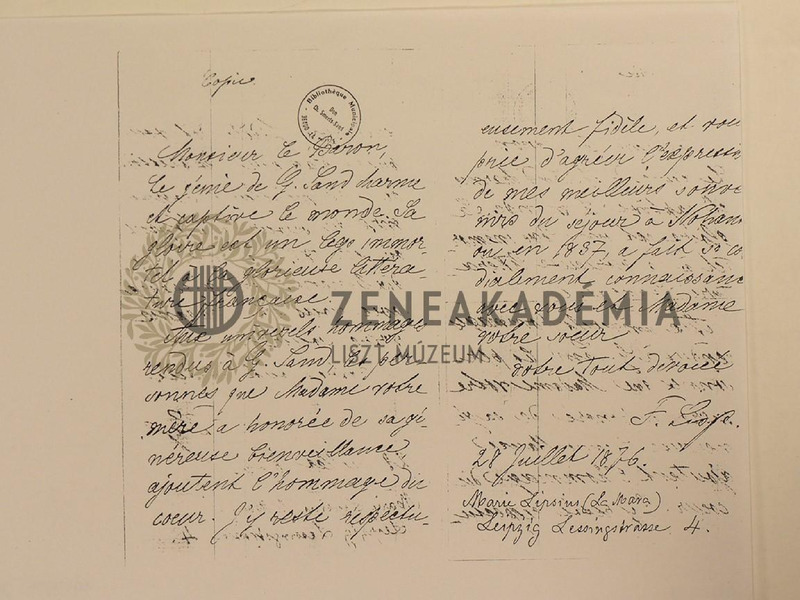 Copie
Bibliothèque Municipale
Monsieur le Baron,
Le génie de G. Sand charme
et captive le monde. Sa
gloire est un legs immor-
tel à la glorieuse littéra
ture française.
Aux universels hommages
rendus à G. Sand, les per
sonnes que Madame votre
mère a honorée de sa gé-
néreuse bienveillance,
ajoutent l'hommage du
coeur. J'y reste respectu-
eusement fidèle, et vou
prie d'agréer l'expression
de mes meilleurs souve
nirs du séjour à Nohan
ou en 1837, a fait si co
dialement connaissanc
avec vous et Madame
votre soeur
votre tout dévoué
F. Liszt.
28 Juillet 1876
Marie Lipsius (La Mara)
Leipzig Lessingstrasse 4.
ZENEAKADÉMIA
LISZT MÚZEUM